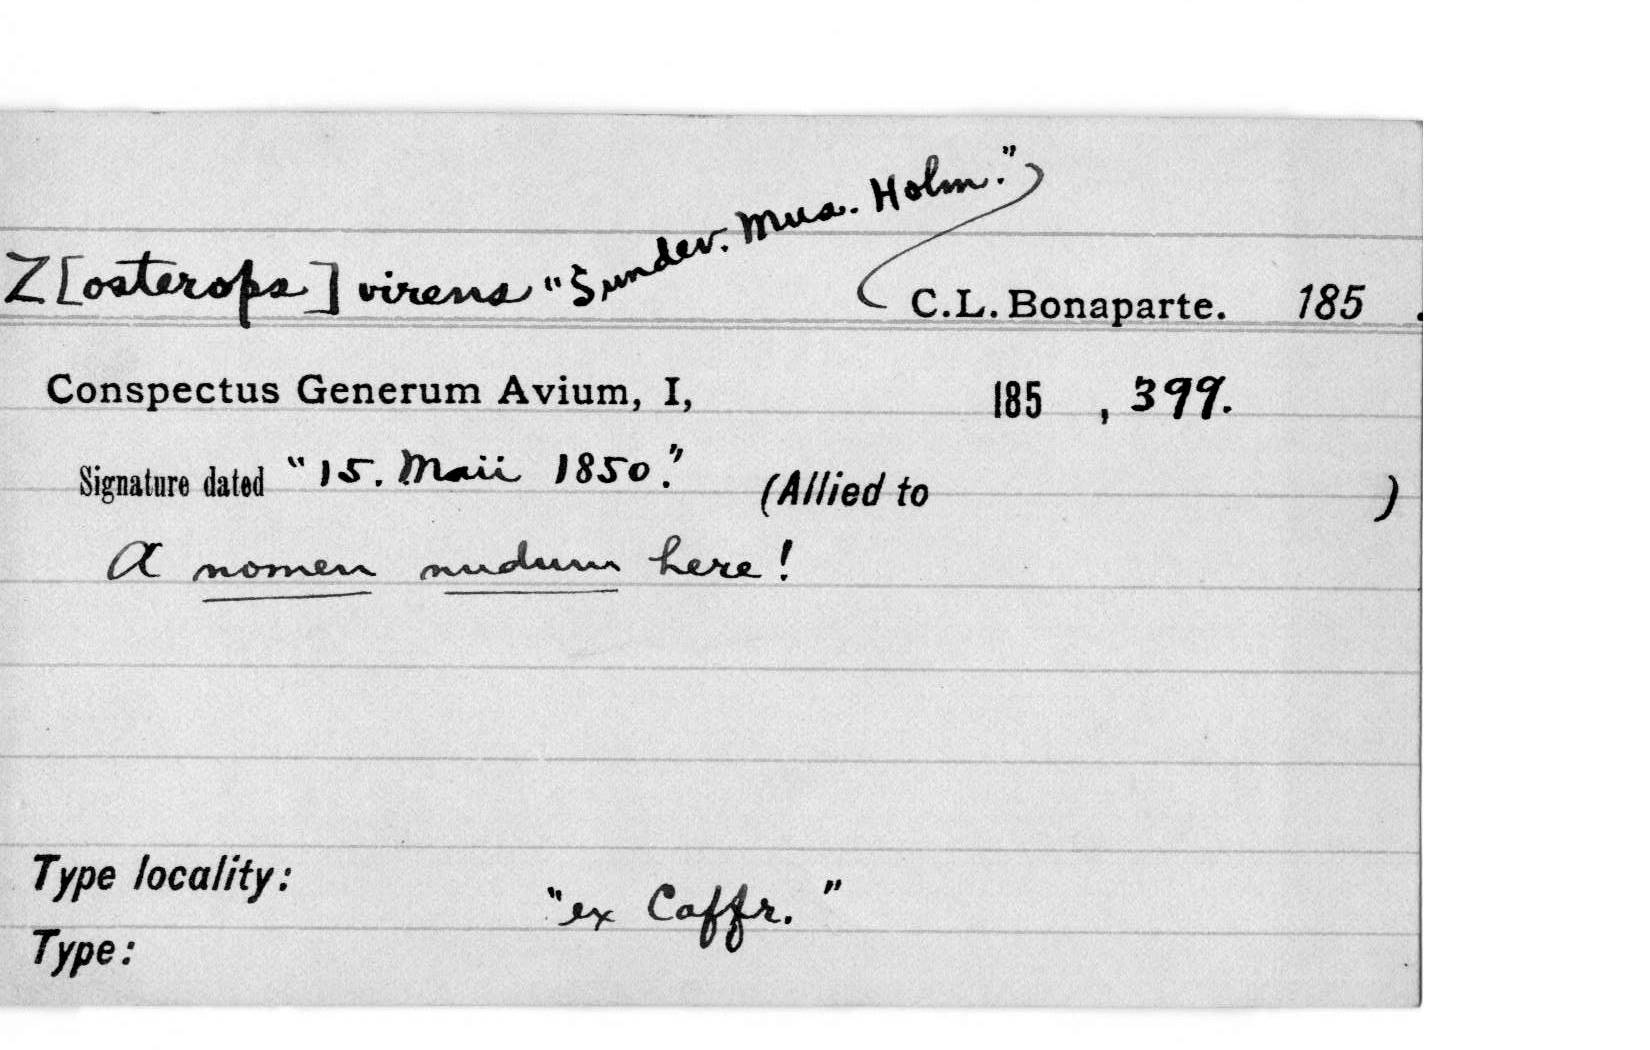 Z[osterops] virens "Sundev. Mus. Holm.") (C.L. Bonaparte. 185 .
Conspectus Generum Avium, I, 185 , 399.
Signature dated "15. Maii 1850." (Allied to )
A nomen nudum here!
Type locality:
"ex Caffr."
Type: